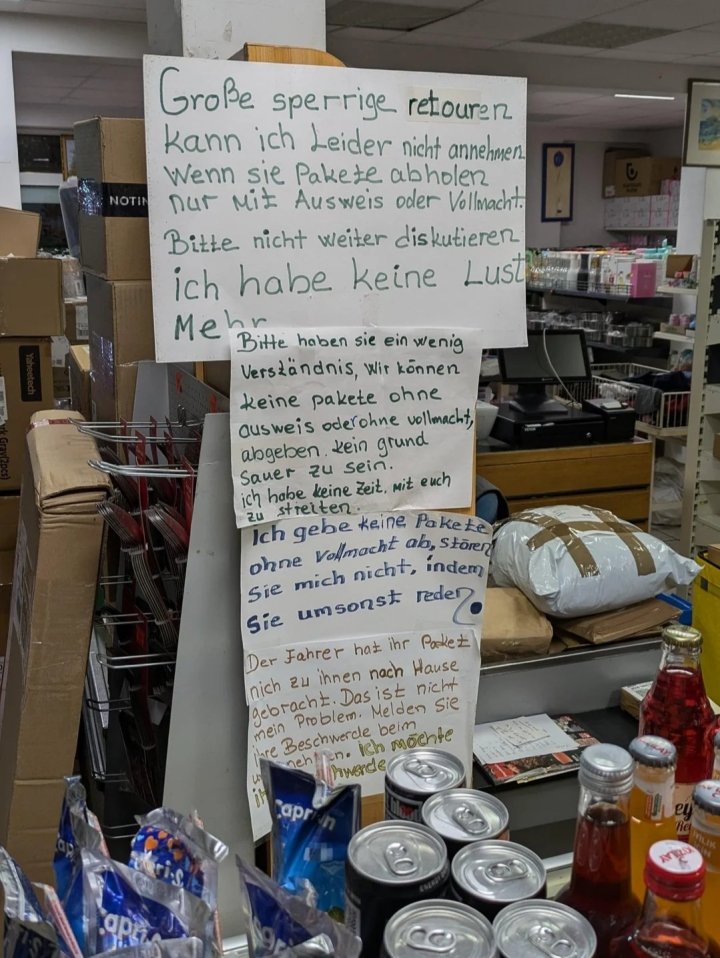 Große sperrige retouren
kann ich Leider nicht annehmen
Wenn sie Pakete abholen
nur Mit Ausweis oder Vollmacht.
Bitte nicht weiter diskutieren
ich habe keine Lust
Mehr
Bitte haben sie ein wenig
Verständnis, wir können
keine pakete ohne
ausweis oder ohne vollmacht,
abgeben. kein grund
Sauer zu sein.
ich habe keine Zeit. mit euch
zu streiten.
Ich gebe keine Pakete
ohne Vollmacht ab, stören
Sie mich nicht, indem
Sie umsonst reden
Der Fahrer hat ihr Paket
nich zu ihnen nach Hause
gebracht. Das ist nicht
mein Problem. Melden Sie
ihre Beschwerde beim
Ich möchte
NOTIN
capri-sun